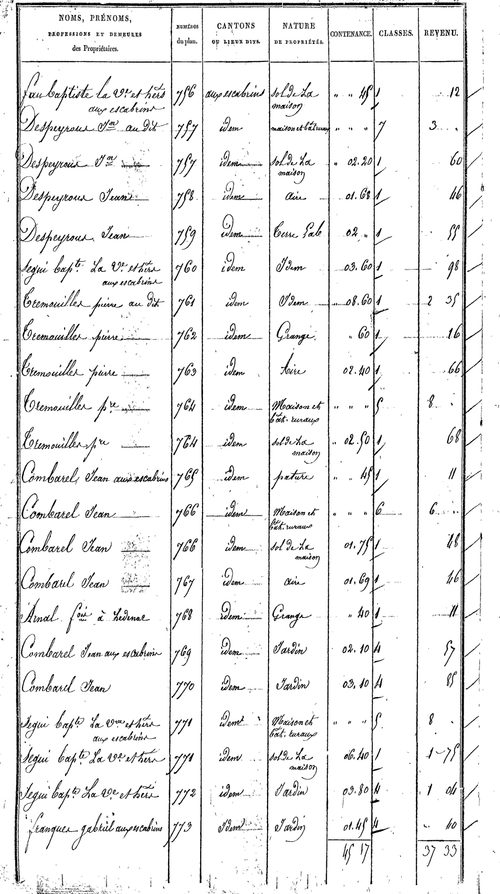 NOMS, PRÉNOMS, PROFESSIONS ET DEMEURES des Propriétaires. NUMÉROS du plan. CANTONS OU LIEUX DITS. NATURE DE PROPRIÉTÉS. CONTENANCE. CLASSES. REVENU.
baptiste la Vve et htiers aux escabrins 756 aux escabrins sol de la maison " " 45 1 12
Despeyrous Jn au dit 757 idem maison et bat. ruraux " " " 7 3 "
Despeyrous Jn 757 idem sol de la maison " 02.20 1 60
Despeyrous Jean 758 idem aire 01.68 1 46
Despeyrous Jean 759 idem Terre Lab 02 " 1 55
Segui Bapte La Ve et htiers aux escabrins 760 idem Idem 03.60 1 98
Tremouilles pierre au dit 761 idem Idem 08.60 1 2 35
Tremouilles pierre 762 idem Grange " 60 1 16
Tremouilles pierre 763 idem Aire 02.40 1 66
Tremouilles pre 764 idem Maison et bat. ruraux " " " 5 8 "
Tremouilles pre 764 idem sol de la maison " 02.50 1 68
Combarel Jean aux escabrins 765 idem pature " 45 1 11
Combarel Jean 766 idem Maison et bat. ruraux " " " 6 6 "
Combarel Jean 766 idem sol de la maison 01.75 1 48
Combarel Jean 767 idem aire 01.69 1 46
Arnal à Ledenac 768 idem Grange " 40 1 11
Combarel Jean aux escabrins 769 idem Jardin 02.10 4 57
Combarel Jean 770 idem Jardin 03.10 4 85
Segui bapte La Vve et htiers aux escabrins 771 idem Maison et bat. ruraux " " " 5 8 "
Segui bapte La Ve et htiers 771 idem sol de la maison 06.40 1 1 75
Segui bapte La Ve et htiers 772 idem Jardin 03.80 4 1 04
franques gabriel aux escabrins 773 Idem Jardin 01.45 4 " 40
45 17 37 33